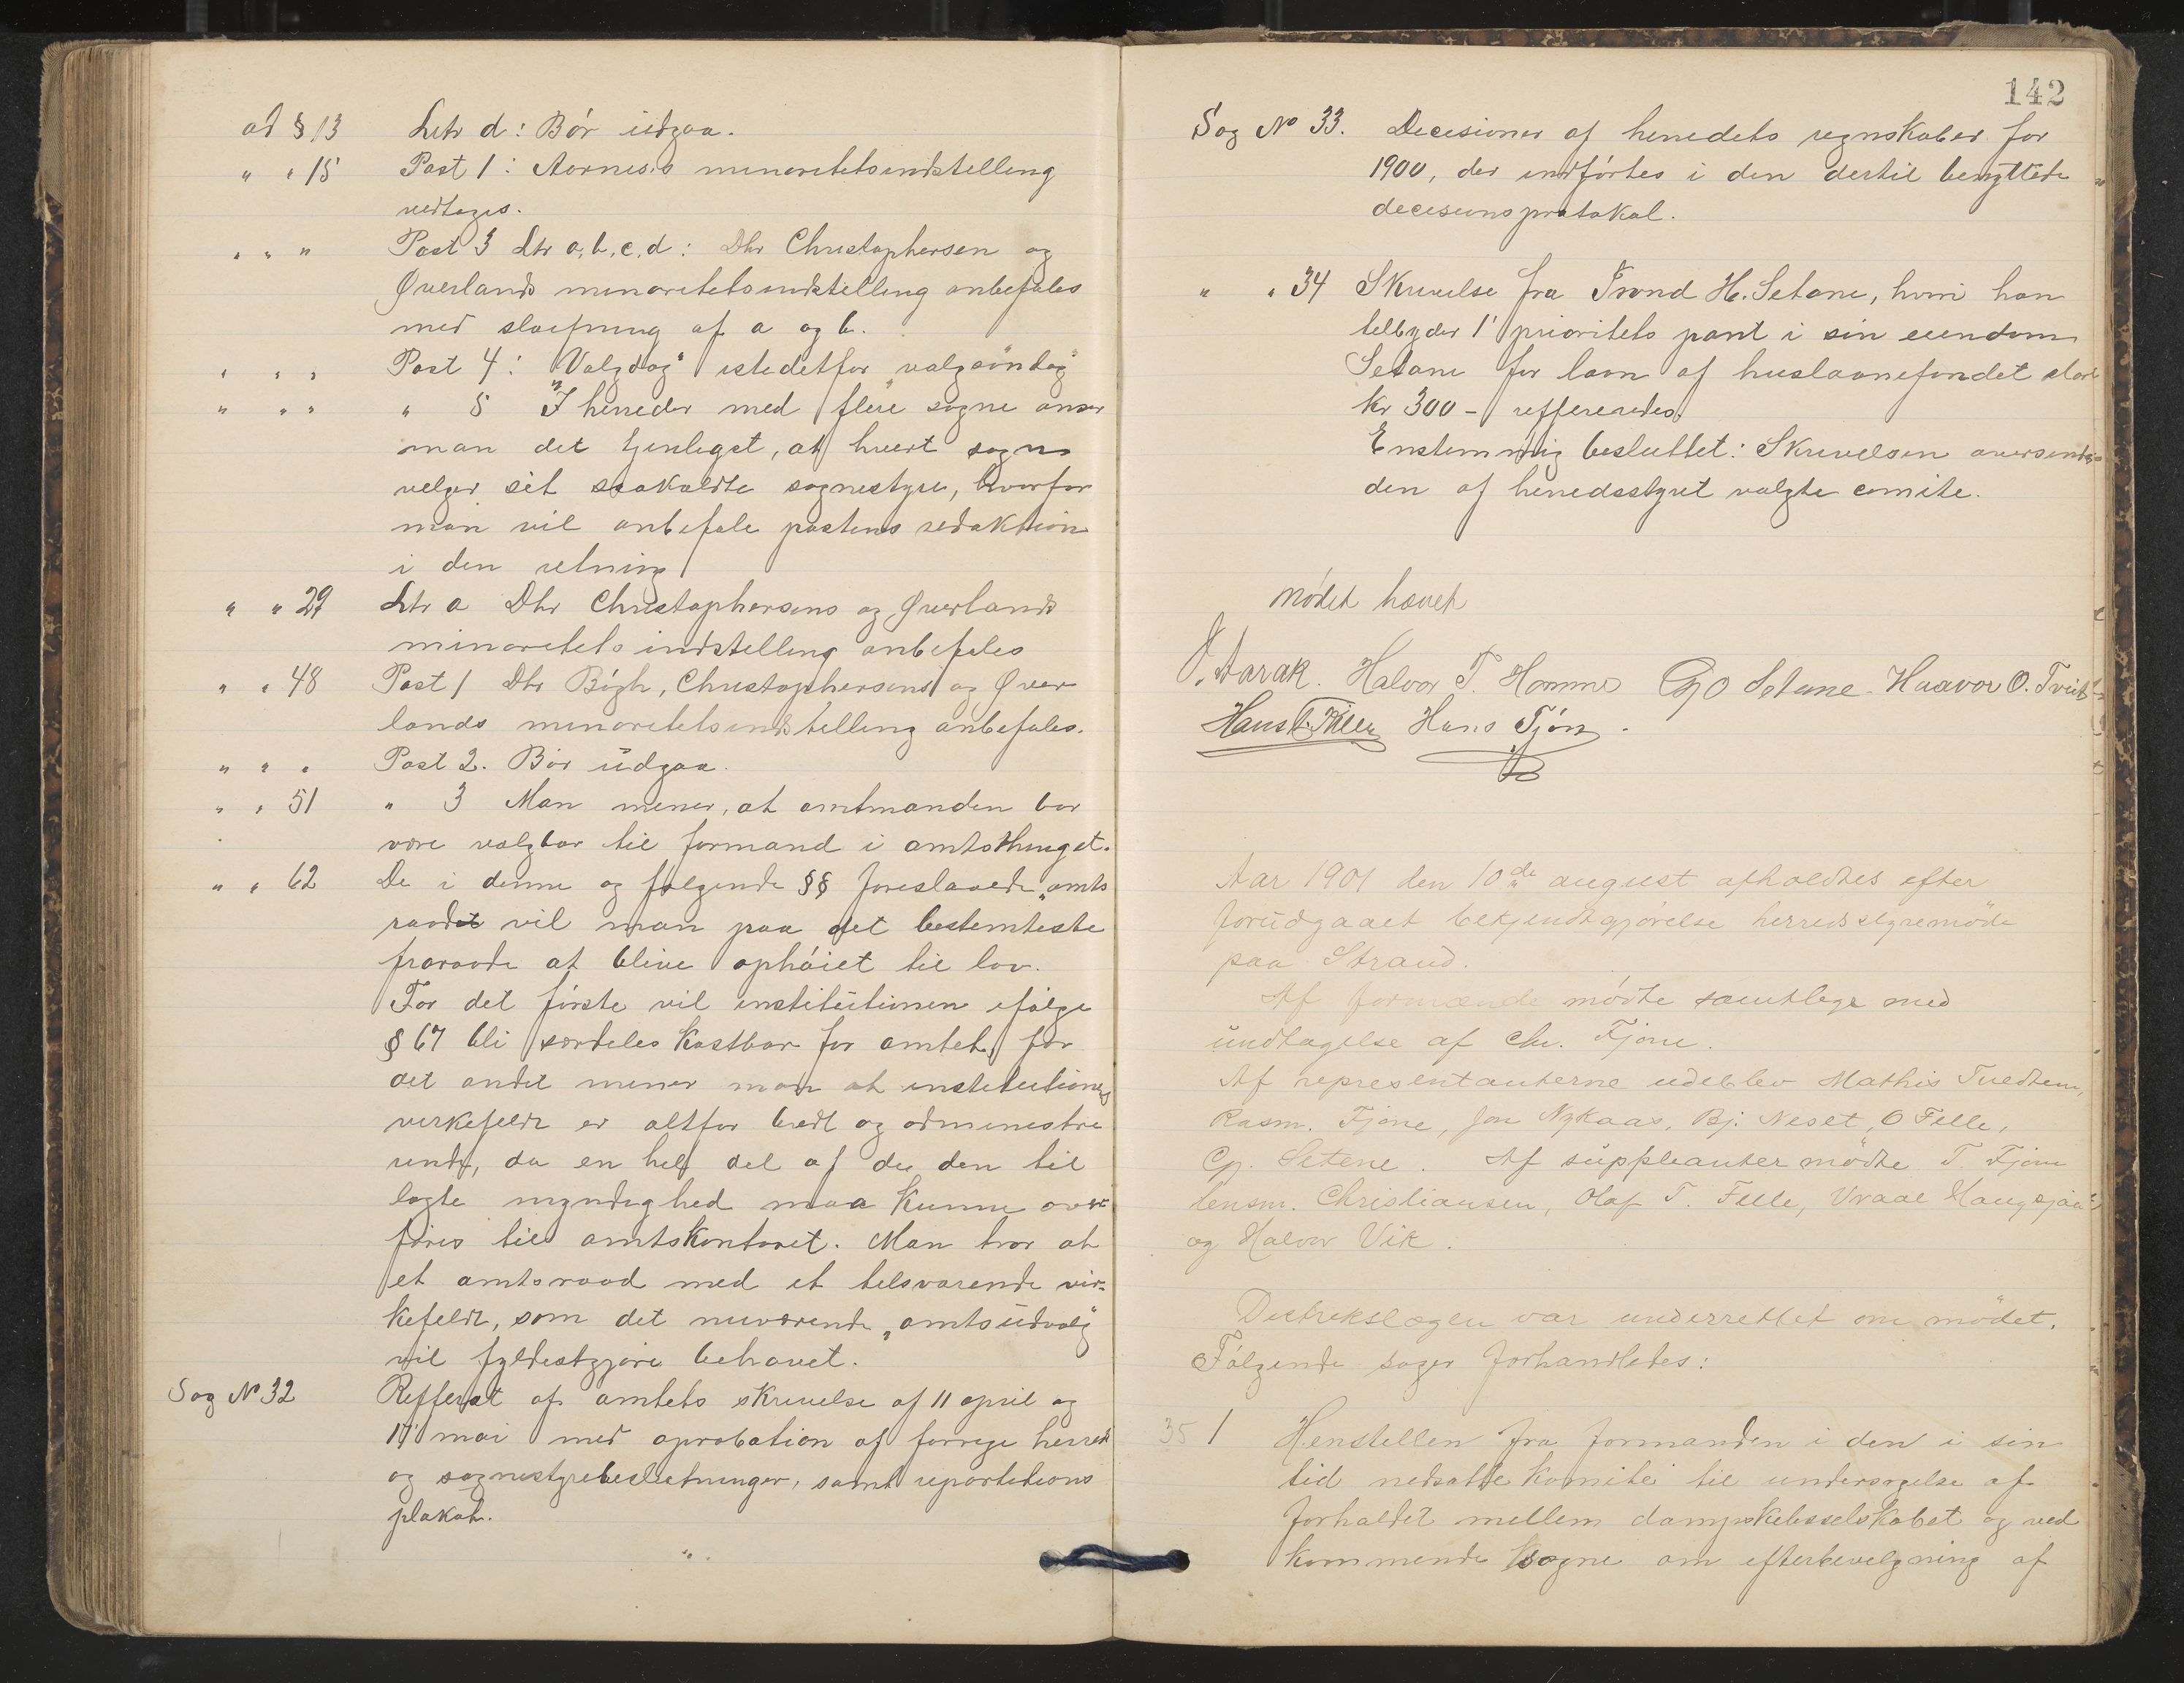 ad § 13 Litr d: Bør udgaa.
" " 15 Post 1: Aarnes's minoritetsindstilling
vedtages.
" " " Post 3 Litr a, b, c, d: Dhr Christophersen og
Øverlands minoritetsindstilling anbefales
med sløifning af a og b.
" " " Post 4: "Valgdag" istedetfor "valgsøndag"
" " " " 5 "I herreder med flere sogne anser
man det tjenligst, at hvert sogn
velger sit saakaldte sognestyre, hvorfor
man vil anbefale postens redaktion
i den retning
" " 29 Litr a Dhr Christophersens og Øverlands
minoritetsindstilling anbefales
" " 48 Post 1 Dhr Bøgh, Christophersens og Øver
lands minoritetsindstilling anbefales.
" " " Post 2. Bør udgaa.
" " 51 " 3 Man mener, at amtmanden bør
være valgbar til formand i amtsthinget.
" " 62 De i denne og følgende §§ foreslaaede "amts
raad vil man paa det bestemteste
fraraade at blive ophøiet til lov.
For det første vil institutionen ifølge
§ 67 bli særdeles kostbar for amtet, for
det andet mener man at institutionens
virkefeldt er altfor bredt og administre
rende, da en hel del af de den til
lagte myndighed maa kunne over
føres til amtskontoret. Man tror at
et amtsraad med et tilsvarende vir-
kefeldt, som det nuværende "amtsudvalg"
vil fyldestgjøre behovet.
Sag No 32 Refferat af amtets skrivelse af 11 april og
17 mai med aprobation af forrige herreds
og sognestyrebeslutninger, samt repartitions
plakat.
142
Sag No 33. Decisioner af herredets regnskaber for
1900, der indførtes i den dertil benyttede
decisionsprotokol.
" " 34 Skrivelse fra Trond H. Setane, hvori han
tilbyder 1' prioritets pant i sin eiendom
Setane for laan af huslaanefondet stort
kr 300 - reffereredes.
Enstemmig besluttet: Skrivelsen oversendes
den af herredsstyret valgte comite.
Mødet hævet
Aarak. Halvor T. Homme Gp O Setane. Haavor O. Tveit
Hans T. Fille Hans Fjøn.
Aar 1901 den 10de august afholdtes efter
forudgaaet bekjendtgjørelse herredsstyremøde
paa Strand.
Af formænde mødte samtlige med
undtagelse af Chr. Fjone.
Af representanterne udeblev Mathis Tvedten,
Rasm. Fjone, Jon Nykaas, Bj. Neset, O Fille,
Gp. Setene. Af suppleanter mødte T. Fjone
lensm. Christiansen, Olaf T. Fille, Vraal Haugsjaa
og Halvor Vik.
Distrikslægen var underrettet om mødet.
Følgende sager forhandledes:
35 1 Henstillen fra formanden i den i sin
tid nedsatte komite til undersøgelse af
forholdet mellem dampskibsselskabet og ved
kommende sogne om efterbevilgning af